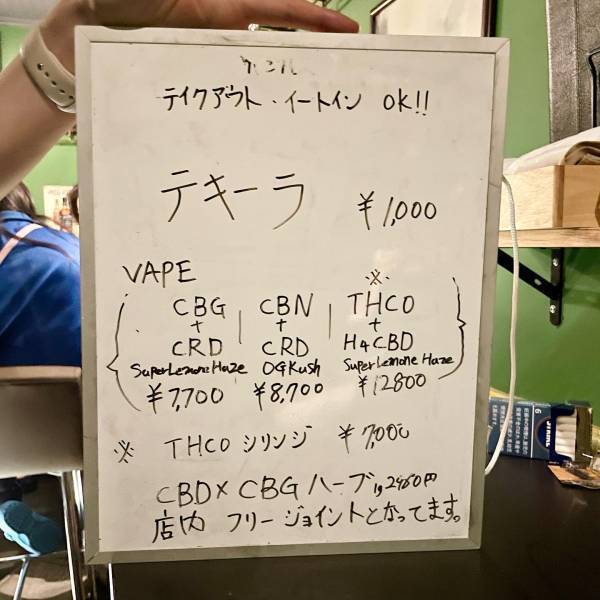 テイクアウト・イートイン OK!!
テキーラ ¥1,000
VAPE
※
CBG | CBN | THCO
+ + +
CRD CRD H4CBD
SuperLemoneHaze OGKush SuperLemoneHaze
¥7,700 ¥8,700 ¥12800
※ THCO シリンジ ¥7,000
CBD×CBG ハーブ 1g
店内 フリージョイントとなってます。